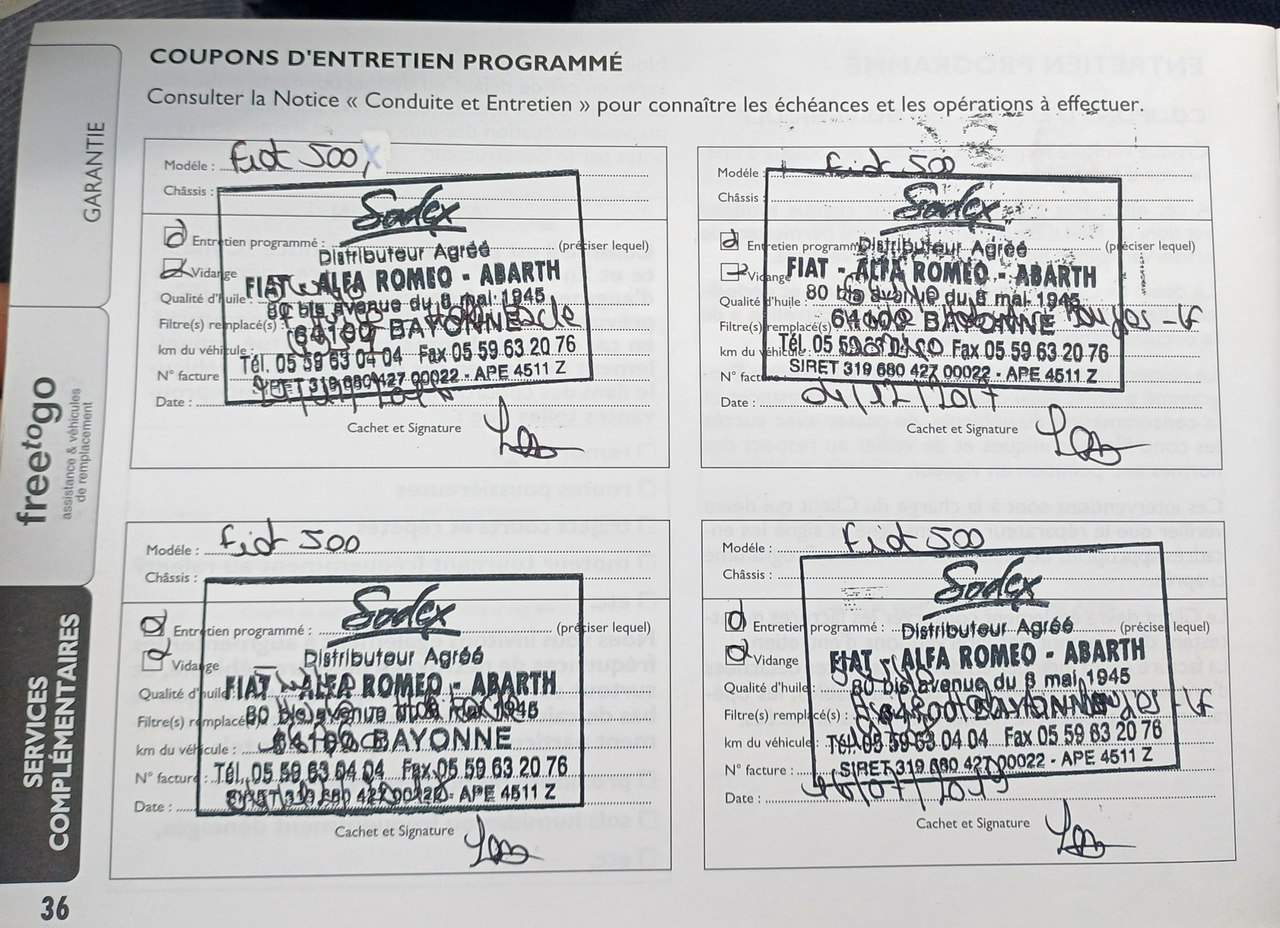 COUPONS D'ENTRETIEN PROGRAMMÉ
Consulter la Notice « Conduite et Entretien » pour connaître les échéances et les opérations à effectuer.
GARANTIE
freetogo
assistance & véhicules
de remplacement
SERVICES
COMPLÉMENTAIRES
36
Modéle : Fiat 500X
Châssis :
Sodex
Entretien programmé : (préciser lequel)
Distributeur Agréé
Vidange
FIAT - ALFA ROMEO - ABARTH
Qualité d'huile :
80 bis avenue du 8 mai 1945
Filtre(s) remplacé(s) :
64100 BAYONNE
km du véhicule :
Tél. 05 59 63 04 04 Fax 05 59 63 20 76
N° facture
SIRET 319 680 427 00022 - APE 4511 Z
Date :
Cachet et Signature
Modéle : Fiat 500
Châssis :
Sodex
Entretien programmé (préciser lequel)
Distributeur Agréé
Vidange
FIAT - ALFA ROMEO - ABARTH
Qualité d'huile :
80 bis avenue du 8 mai 1945
Filtre(s) remplacé(s)
64100 BAYONNE
km du véhicule :
Tél. 05 59 63 04 04 Fax 05 59 63 20 76
N° facture
SIRET 319 680 427 00022 - APE 4511 Z
Date : 04/12/2017
Cachet et Signature
Modéle : Fiat 500
Châssis :
Sodex
Entretien programmé : (préciser lequel)
Distributeur Agréé
Vidange
FIAT - ALFA ROMEO - ABARTH
Qualité d'huile :
80 bis avenue du 8 mai 1945
Filtre(s) remplacé
64100 BAYONNE
km du véhicule :
Tél. 05 59 63 04 04 Fax 05 59 63 20 76
N° facture :
SIRET 319 680 427 00022 - APE 4511 Z
Date :
Cachet et Signature
Modéle : Fiat 500
Châssis :
Sodex
Entretien programmé : (préciser lequel)
Distributeur Agréé
Vidange
FIAT - ALFA ROMEO - ABARTH
Qualité d'huile :
80 bis avenue du 8 mai 1945
Filtre(s) remplacé(s) :
64100 BAYONNE
km du véhicule :
Tél. 05 59 63 04 04 Fax 05 59 63 20 76
N° facture :
SIRET 319 680 427 00022 - APE 4511 Z
Date :
Cachet et Signature